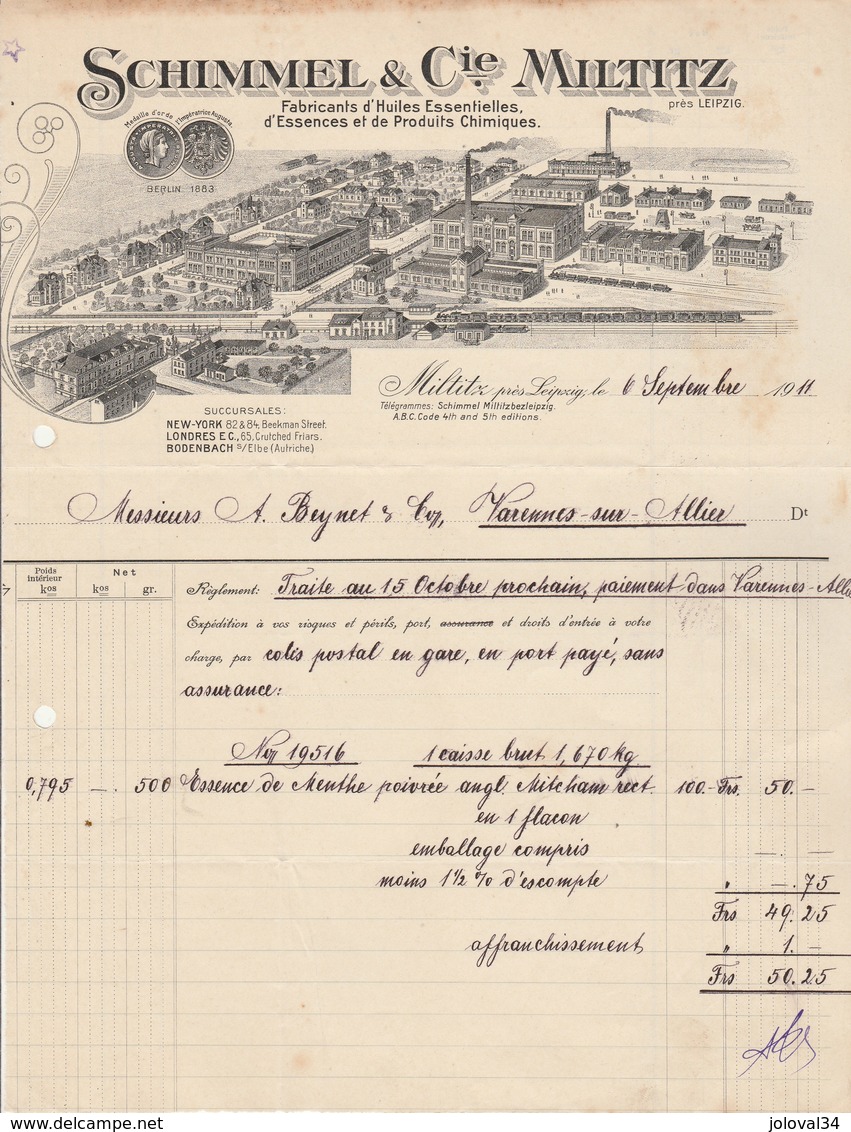 SCHIMMEL & Cie. MILTITZ
près LEIPZIG.
Fabricants d'Huiles Essentielles,
d'Essences et de Produits Chimiques.
Medaille d'or de l'Impératrice Augusta
BERLIN 1883
Miltitz près Leipzig, le 6 Septembre 1911
Télégrammes: Schimmel Miltitzbezleipzig.
A.B.C. Code 4th and 5th editions.
SUCCURSALES:
NEW-YORK 82 & 84, Beekman Street.
LONDRES E C., 65, Crutched Friars.
BODENBACH s/Elbe (Autriche)
Messieurs A. Beynet & Co, Varennes-sur-Allier Dt
Poids intérieur kos Net kos gr.
Règlement: Traite au 15 Octobre prochain, paiement dans Varennes-Allie
Expédition à vos risques et périls, port, assurance et droits d'entrée à votre
charge, par colis postal en gare, en port payé, sans
assurance:
No 19516 1 caisse brut 1,670 kg
0,795 —. 500 Essence de Menthe poivrée angl. Mitcham rect. 100.- Frs. 50.—
en 1 flacon
emballage compris —. —
moins 1½ % d'escompte " —.75
Frs 49.25
affranchissement " 1.—
Frs 50.25
www.delcampe.net
joloval34